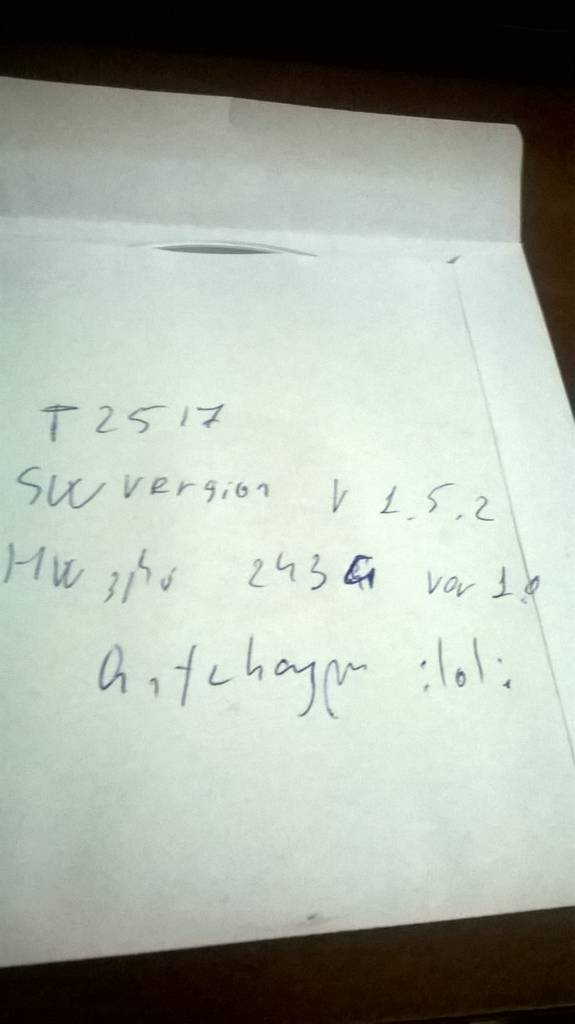 T2517
SW version V 1.5.2
HW 243G ver 1.0
:lol: